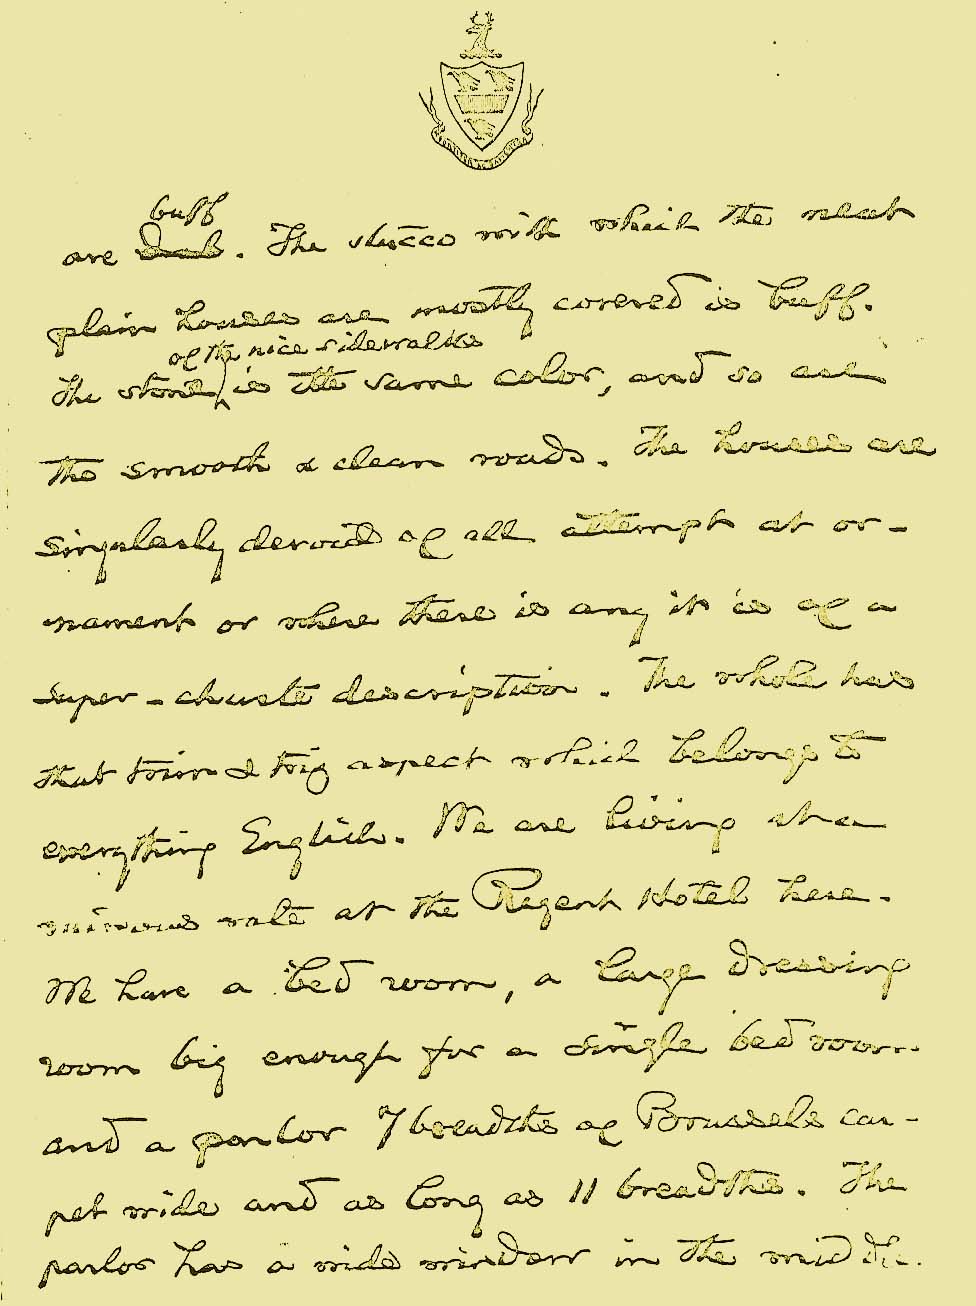 buff
are drab. The stucco with which the neat
plain houses are mostly covered is buff.
of the nice sidewalks
The stone is the same color, and so are
the smooth & clean roads. The houses are
singularly devoid of all attempt at or-
nament or where there is any it is of a
super-chaste description. The whole has
that trim & trig aspect which belongs to
everything English. We are living at a
ruinous rate at the Regent Hotel here.
We have a bed room, a large dressing
room big enough for a single bed room
and a parlor 7 breadths of Brussels car-
pet wide and as long as 11 breadths. The
parlor has a wide window in the middle